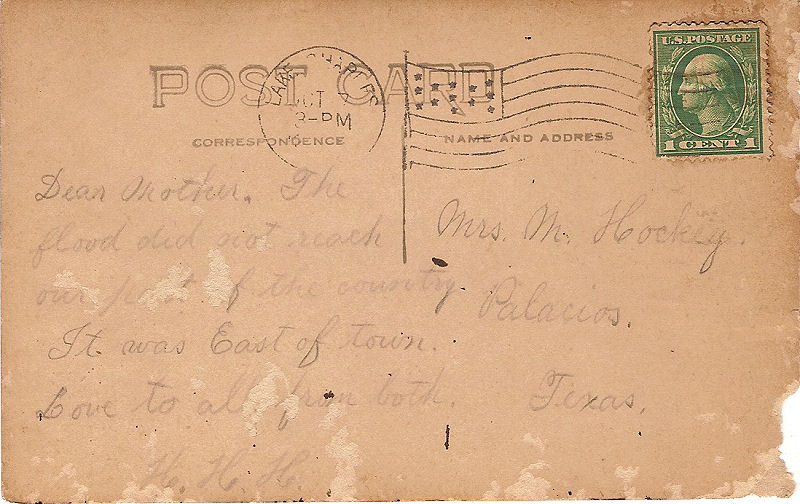 POST CARD
LAKE CHARLES
OCT 7
3-PM
U.S. POSTAGE
1 CENT 1
CORRESPONDENCE
NAME AND ADDRESS
Dear Mother. The
flood did not reach
our part of the country
It was East of town.
Love to all from both.
H. H. H.
Mrs. M. Hockey.
Palacios.
Texas.